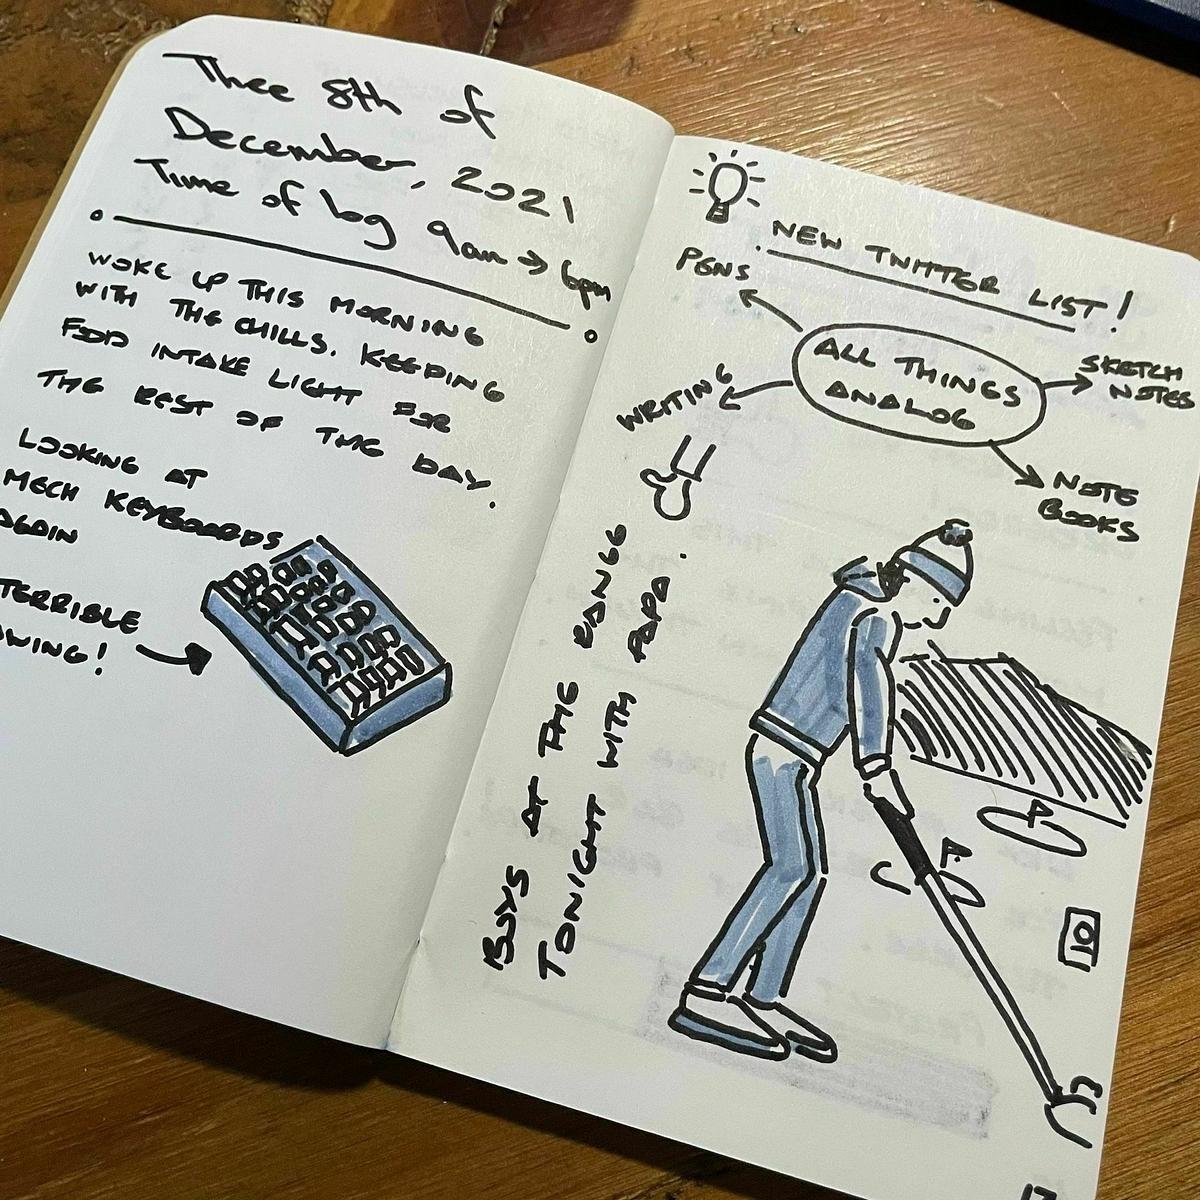 Thee 8th of
December, 2021
Time of log 9am → 6pm
WOKE UP THIS MORNING
WITH THE CHILLS. KEEPING
FOOD INTAKE LIGHT FOR
THE REST OF THE DAY.
LOOKING AT
MECH KEYBOARDS
AGAIN
TERRIBLE
WING!
NEW TWITTER LIST!
PENS
ALL THINGS
ANALOG
SKETCH
NOTES
WRITING
NOTE
BOOKS
BUYS AT THE RANGE
TONIGHT WITH PAPA.
10